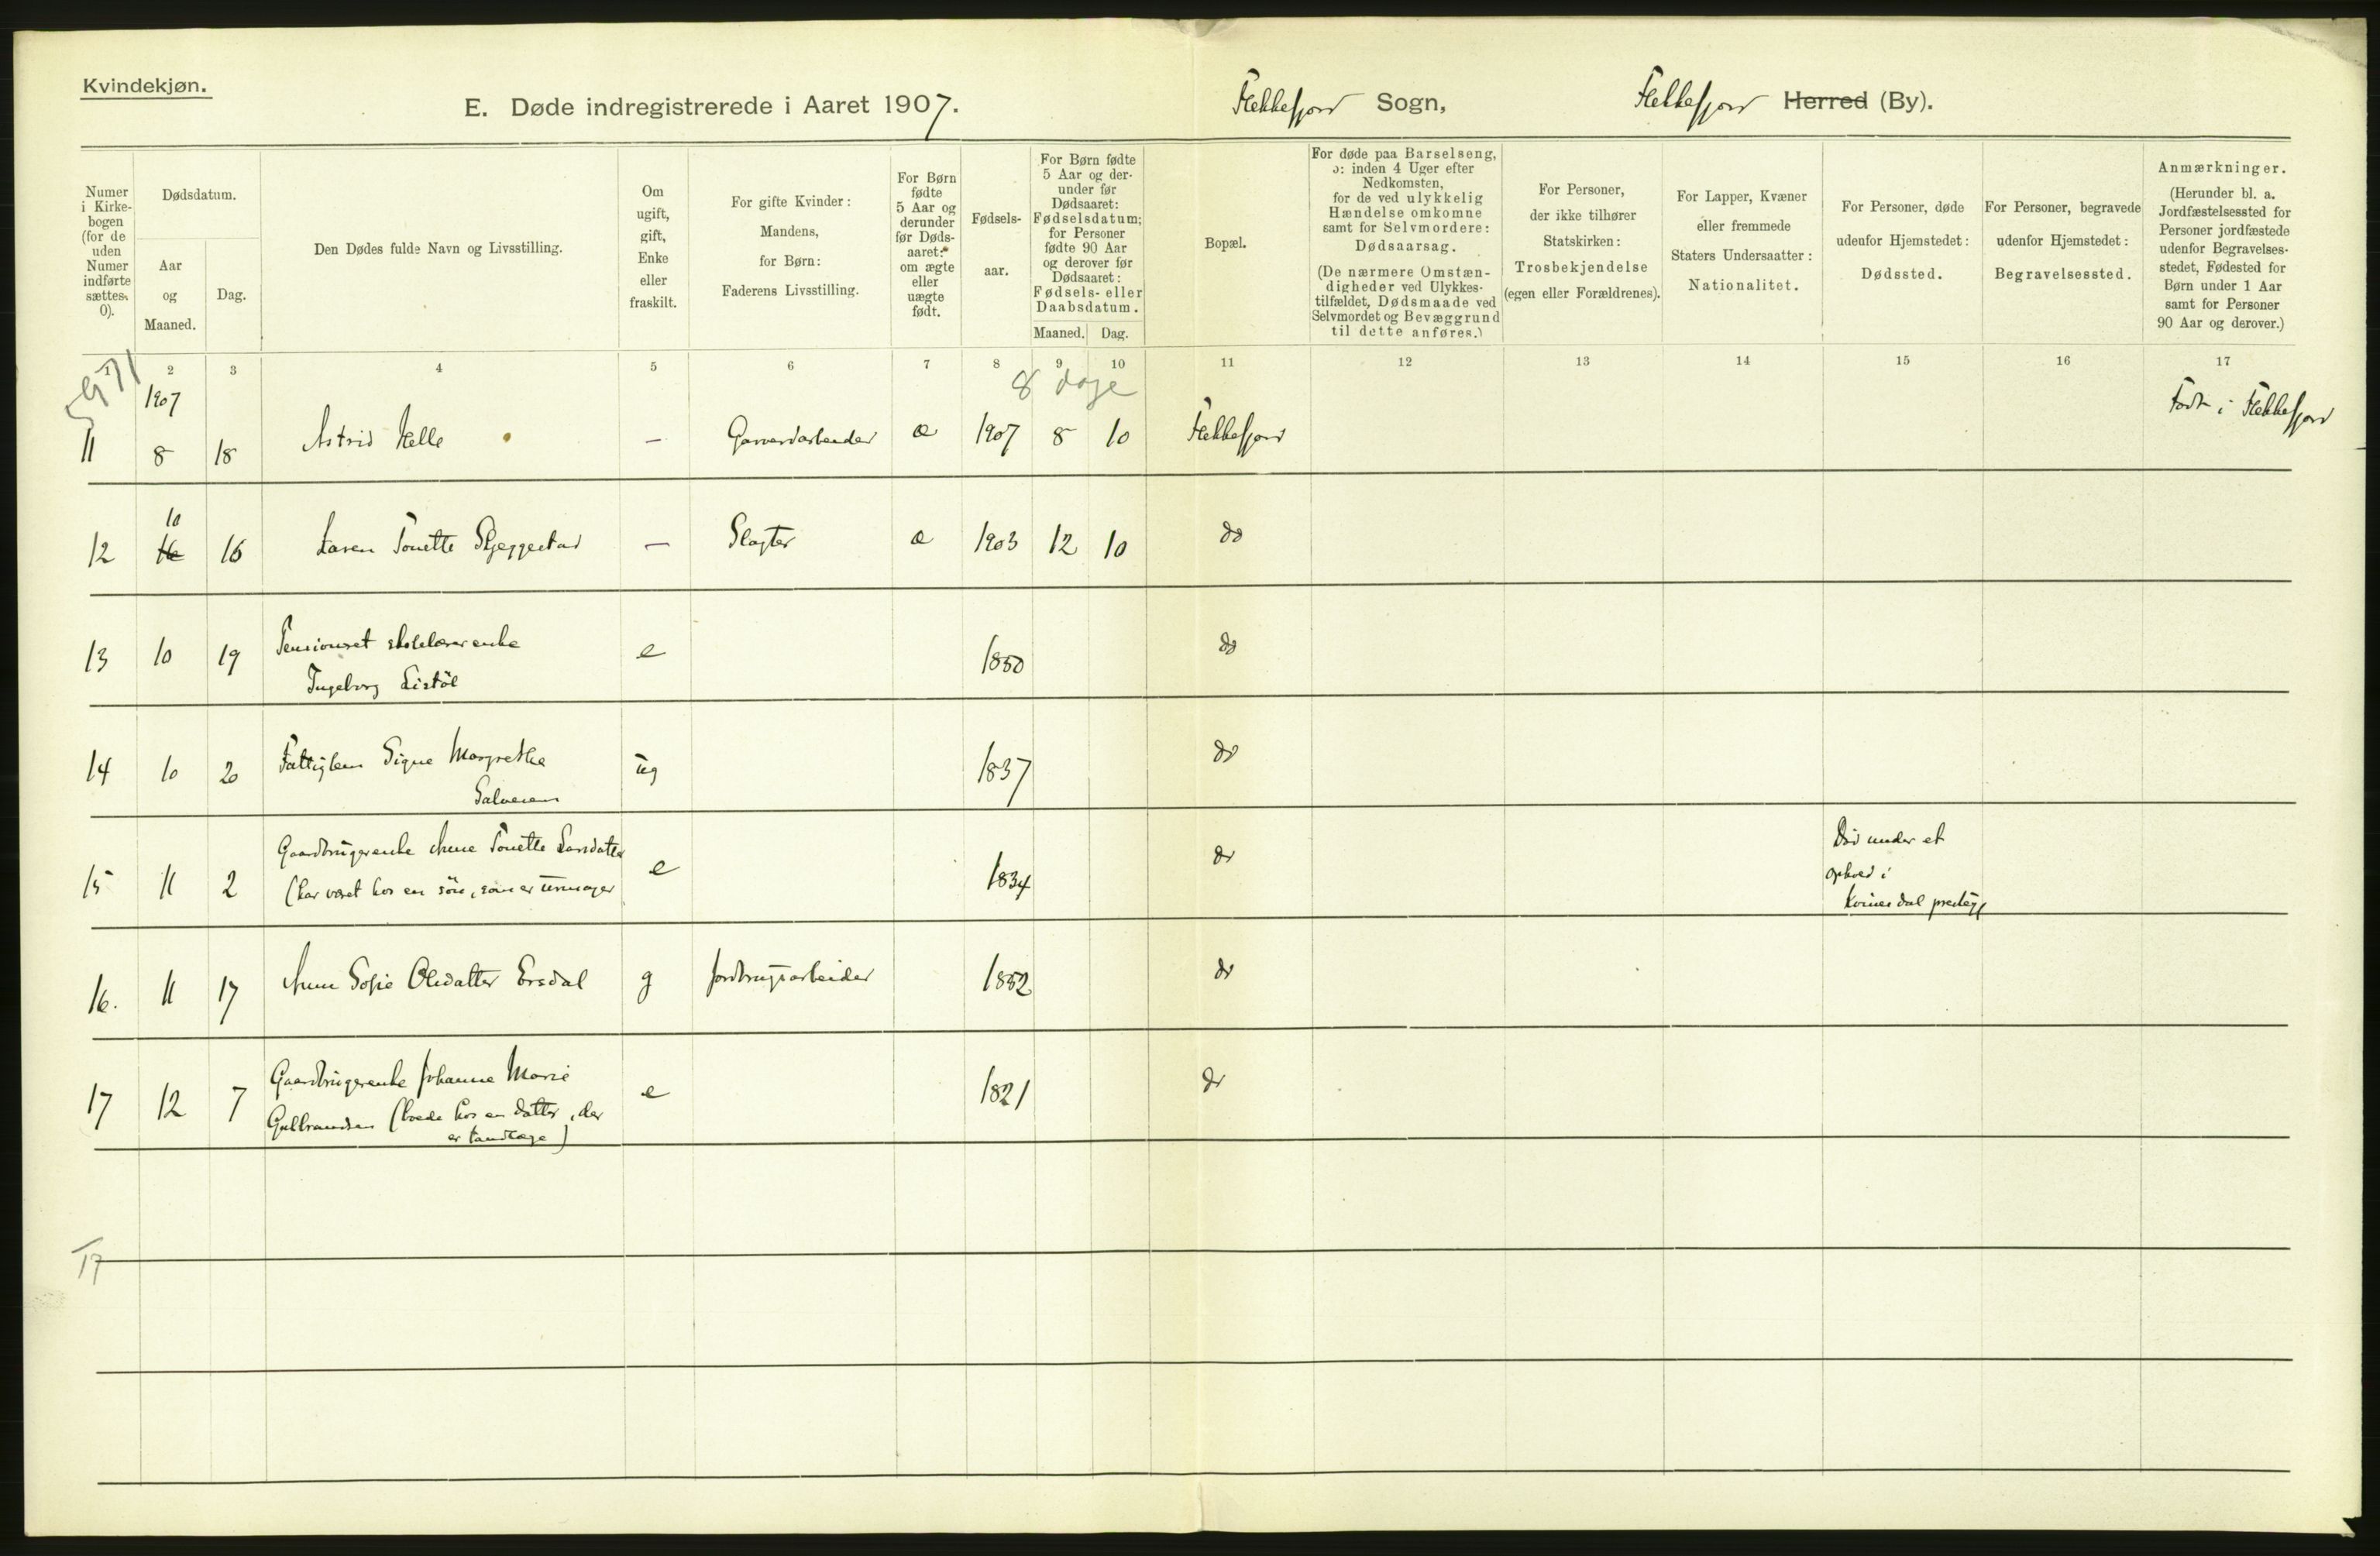 Kvindekjøn.
E. Døde indregistrerede i Aaret 1907.
Flekkefjord Sogn,
Flekkefjord Herred (By).
Numer
i Kirke-
bogen
(for de
uden
Numer
indførte
sættes
0).
Dødsdatum.
Aar
og
Maaned.
Dag.
Den Dødes fulde Navn og Livsstilling.
Om
ugift,
gift,
Enke
eller
fraskilt.
For gifte Kvinder:
Mandens,
for Børn:
Faderens Livsstilling.
For Børn
fødte
5 Aar og
derunder
før Døds-
aaret:
om ægte
eller
uægte
født.
Fødsels-
aar.
For Børn fødte
5 Aar og der-
under før
Dødsaaret:
Fødselsdatum;
for Personer
fødte 90 Aar
og derover før
Dødsaaret:
Fødsels- eller
Daabsdatum.
Maaned. Dag.
Bopæl.
For døde paa Barselseng,
ɔ: inden 4 Uger efter
Nedkomsten,
for de ved ulykkelig
Hændelse omkomne
samt for Selvmordere:
Dødsaarsag.
(De nærmere Omstæn-
digheder ved Ulykkes-
tilfældet, Dødsmaade ved
Selvmordet og Bevæggrund
til dette anføres.)
For Personer,
der ikke tilhører
Statskirken:
Trosbekjendelse
(egen eller Forældrenes).
For Lapper, Kvæner
eller fremmede
Staters Undersaatter:
Nationalitet.
For Personer, døde
udenfor Hjemstedet:
Dødssted.
For Personer, begravede
udenfor Hjemstedet:
Begravelsessted.
Anmærkninger.
(Herunder bl. a.
Jordfæstelsessted for
Personer jordfæstede
udenfor Begravelses-
stedet, Fødested for
Børn under 1 Aar
samt for Personer
90 Aar og derover.)
1 2 3 4 5 6 7 8 9 10 11 12 13 14 15 16 17
1907
8 dage
11 8 18 Astrid Helle — Garverarbeider æ 1907 8 10 Flekkefjord Født i Flekkefjord
10
12 16 16 Laren Tonette Skjeggestad — Slagter æ 1903 12 10 do
13 10 19 Pensioneret skolelærerenke e 1850 do
Ingeborg Listöl
14 10 20 Fattiglem Signe Margrethe ug 1837 do
Salvesen
15 11 2 Gaardbrugerenke Anne Tonette Larsdatter e 1834 do
(har været hos en sön, som er urmager
Död under et
ophold i
Kvinesdal prestegj
16. 11 17 Anne Sofie Olsdatter Ersdal g jordbrugsarbeider 1852 do
17 12 7 Gaardbrugerenke Johanne Marie e 1821 do
Gulbrandsen (boede hos en datter, der
er tandlæge)
17